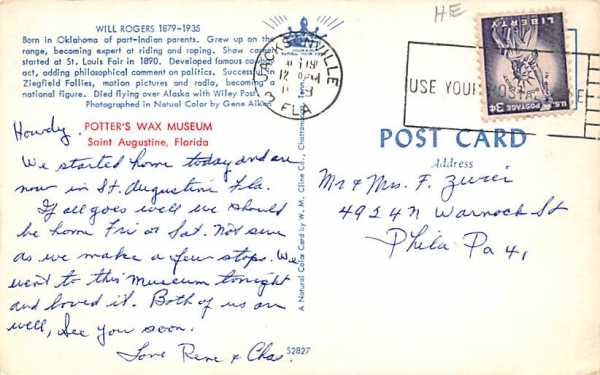 WILL ROGERS 1879-1935
Born in Oklahoma of part-Indian parents. Grew up on the
range, becoming expert at riding and roping. Show
started at St. Louis Fair in 1890. Developed famous
act, adding philosophical comment on politics. Success in
Ziegfield Follies, motion pictures and radio, becoming a
national figure. Died flying over Alaska with Wiley Post
Photographed in Natual Color by Gene Aiken
POTTER'S WAX MUSEUM
Saint Augustine, Florida
Howdy.
We started home today and are
now in St. Augustine Fla.
If all goes well we should
be home Fri or Sat. Not sure
as we make a few stops. We
went to this Museum tonight
and loved it. Both of us are
well, See you soon.
Love Rene & Chas.
S2827
A Natural Color Card by W. M. Cline Co., Chattanooga
JACKSONVILLE
FLA
12
HE
USE YOUR POSTAL
LIBERTY
U.S. POSTAGE
3¢
POST CARD
Address
Mr & Mrs. F.
4924 N Warnock St
Phila Pa 41